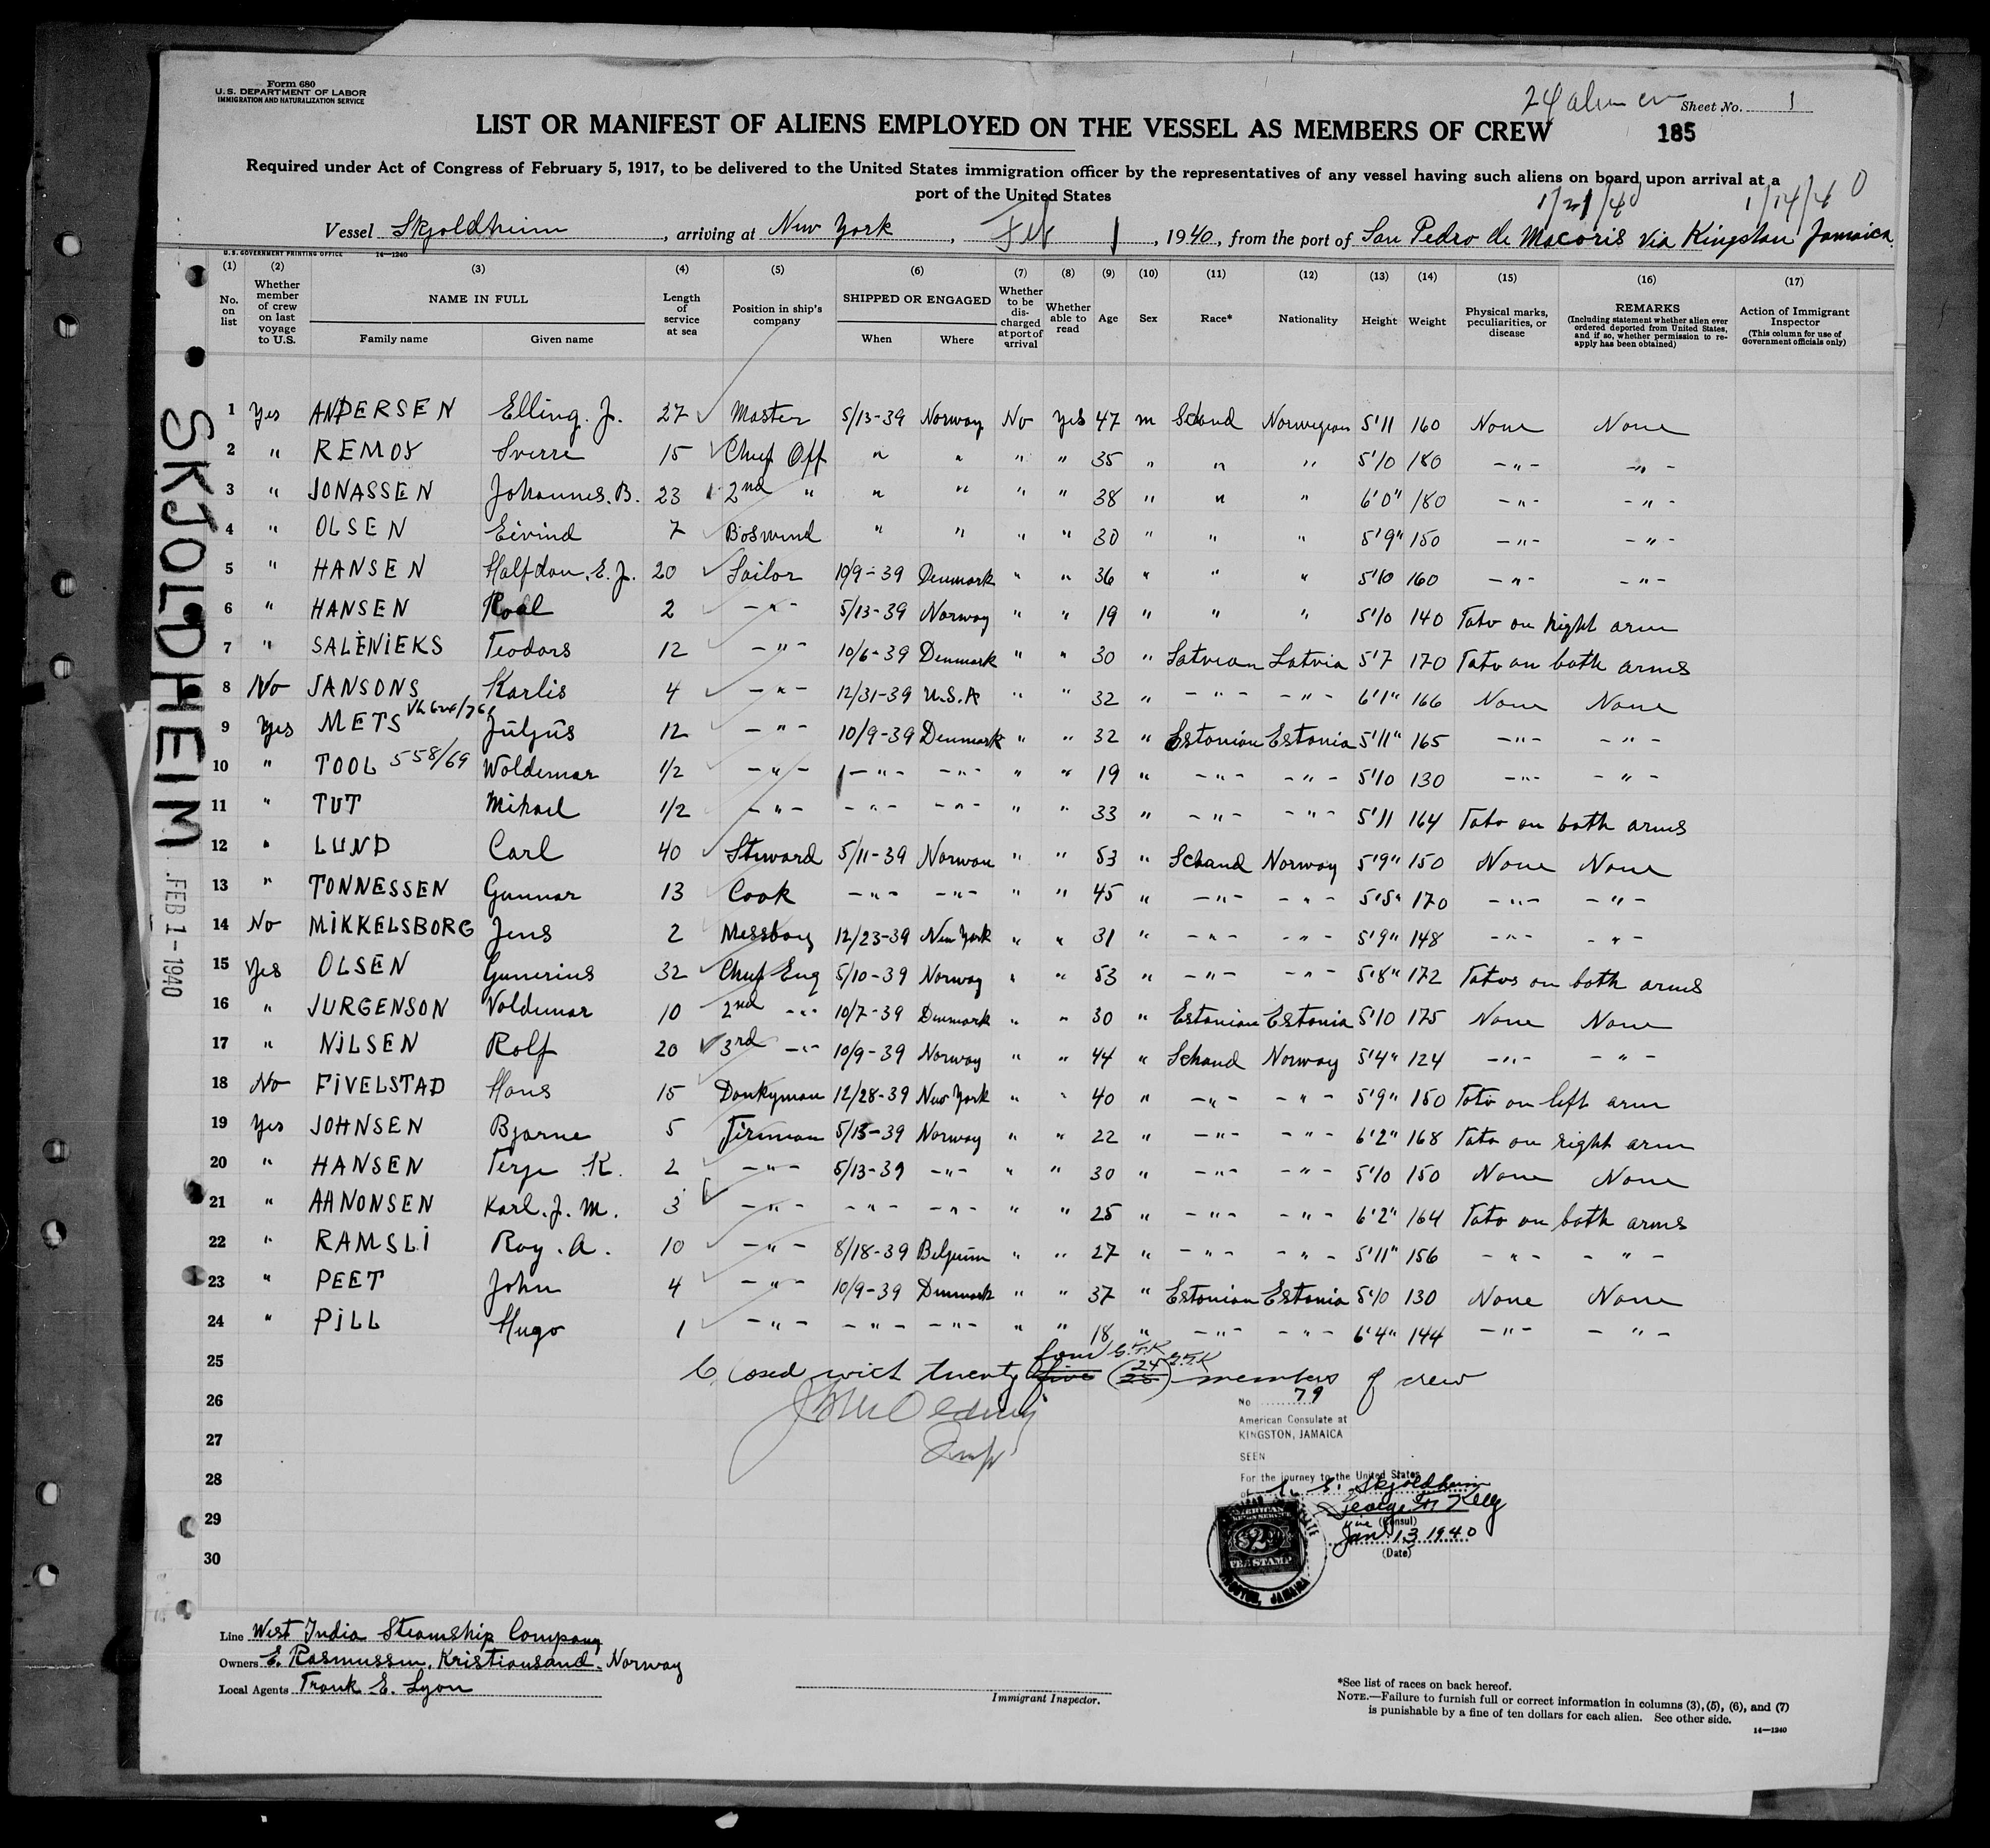 Form 680
U.S. DEPARTMENT OF LABOR
IMMIGRATION AND NATURALIZATION SERVICE
24 alien Sheet No. 1
LIST OR MANIFEST OF ALIENS EMPLOYED ON THE VESSEL AS MEMBERS OF CREW 185
Required under Act of Congress of February 5, 1917, to be delivered to the United States immigration officer by the representatives of any vessel having such aliens on board upon arrival at a
port of the United States
1/21/40 1/14/40
Vessel Skjoldheim, arriving at New York, Feb 1, 1940, from the port of San Pedro de Macoris via Kingston Jamaica
U.S. GOVERNMENT PRINTING OFFICE 14—1240
(1) (2) (3) (4) (5) (6) (7) (8) (9) (10) (11) (12) (13) (14) (15) (16) (17)
No. on list
Whether member of crew on last voyage to U.S.
NAME IN FULL
Family name Given name
Length of service at sea
Position in ship's company
SHIPPED OR ENGAGED
When Where
Whether to be discharged at port of arrival
Whether able to read
Age Sex Race* Nationality Height Weight
Physical marks, peculiarities, or disease
REMARKS
(Including statement whether alien ever ordered deported from United States, and if so, whether permission to re-apply has been obtained)
Action of Immigrant Inspector
(This column for use of Government officials only)
1 Yes ANDERSEN Elling. J. 27 Master 5/13-39 Norway No Yes 47 m Scand Norwegian 5'11 160 None None
2 " REMOY Sverre 15 Chief Off " " " " 35 " " " 5'10 180 -"- -"-
3 " JONASSEN Johannes. B. 23 2nd " " " " " 38 " " " 6'0" 180 -"- -"-
4 " OLSEN Eivind 7 Boswend " " " " 30 " " " 5'9" 150 -"- -"-
5 " HANSEN Halfdan. E. J. 20 Sailor 10/9-39 Denmark " " 36 " " " 5'10 160 -"- -"-
6 " HANSEN Roal 2 -"- 5/13-39 Norway " " 19 " " " 5'10 140 Tato on right arm
7 " SALĖNIEKS Teodors 12 -"- 10/6-39 Denmark " " 30 " Latvian Latvia 5'7 170 Tato on both arms
8 No JANSONS Karlis 4 -"- 12/31-39 U.S.A " " 32 " -"- -"- 6'1" 166 None None
9 Yes METS Jūljūs 12 -"- 10/9-39 Denmark " " 32 " Estonian Estonia 5'11" 165 -"- -"-
10 " TOOL 558/69 Woldemar 1/2 -"- -"- -"- " " 19 " -"- -"- 5'10 130 -"- -"-
11 " TUT Mihael 1/2 -"- -"- -"- " " 33 " -"- -"- 5'11 164 Tato on both arms
12 " LUND Carl 40 Steward 5/11-39 Norway " " 53 " Scand Norway 5'9" 150 None None
13 " TONNESSEN Gunnar 13 Cook -"- -"- " " 45 " -"- -"- 5'5" 170 -"- -"-
14 No MIKKELSBORG Jens 2 Messboy 12/23-39 New York " " 31 " -"- -"- 5'9" 148 -"- -"-
15 Yes OLSEN Gunerius 32 Chief Eng 5/10-39 Norway " " 53 " -"- -"- 5'8" 172 Tatos on both arms
16 " JURGENSON Voldemar 10 2nd -"- 10/7-39 Denmark " " 30 " Estonian Estonia 5'10 175 None None
17 " NILSEN Rolf 20 3rd -"- 10/9-39 Norway " " 44 " Schand Norway 5'4" 124 -"- -"-
18 No FIVELSTAD Hans 15 Donkyman 12/28-39 New York " " 40 " -"- -"- 5'9" 150 Tato on left arm
19 Yes JOHNSEN Bjarne 5 Firman 5/13-39 Norway " " 22 " -"- -"- 6'2" 168 Tato on right arm
20 " HANSEN Terje K. 2 -"- 5/13-39 -"- " " 30 " -"- -"- 5'10 150 None None
21 " AANONSEN Karl. J. M. 3 -"- -"- -"- " " 25 " -"- -"- 6'2" 164 Tato on both arms
22 " RAMSLI Roy. A. 10 -"- 8/18-39 Belgium " " 27 " -"- -"- 5'11" 156 -"- -"-
23 " PEET John 4 -"- 10/9-39 Denmark " " 37 " Estonian Estonia 5'10 130 None None
24 " PILL Hugo 1 -"- -"- -"- " " 18 " -"- -"- 6'4" 144 -"- -"-
four G.F.K 24 G.F.K
25 Closed with twenty five (25) members of crew
26
27
28
29
30
Insp
No 79
American Consulate at
KINGSTON, JAMAICA
SEEN
For the journey to the United States
of S. S. Skjoldheim
George F. Kelly
Vice (Consul)
Jan. 13 1940
(Date)
$2
FEE STAMP
KINGSTON, JAMAICA
SKJOLDHEIM
FEB 1-1940
Line West India Steamship Company
Owners E. Rasmussen, Kristiansand, Norway
Local Agents Frank E. Lyon
Immigrant Inspector.
*See list of races on back hereof.
NOTE.—Failure to furnish full or correct information in columns (3), (5), (6), and (7)
is punishable by a fine of ten dollars for each alien. See other side.
14—1240